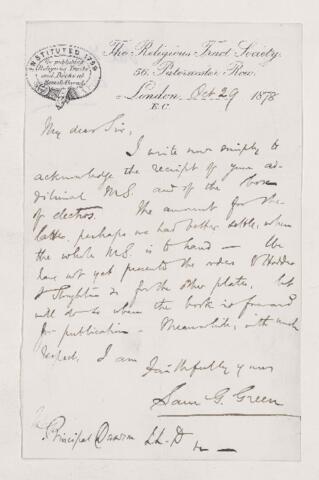 INSTITUTED 1799
for publishing
Religious Tracts
and Books at
The Religious Tract Society.
56, Paternoster Row,
London, Oct 29 1878
E.C.
My dear Sir,
I write now simply to
acknowledge the receipt of your ad-
ditional M.S. and of the box
of electros. The amount for the
latter, perhaps we had better settle, when
the whole M.S. is to hand — We
have not yet presented the orders
for the other plates, but
will do so when the book is forward
for publication — Meanwhile, with much
respect, I am
Faithfully yours
Sam G. Green
Principal Dawson LL.D